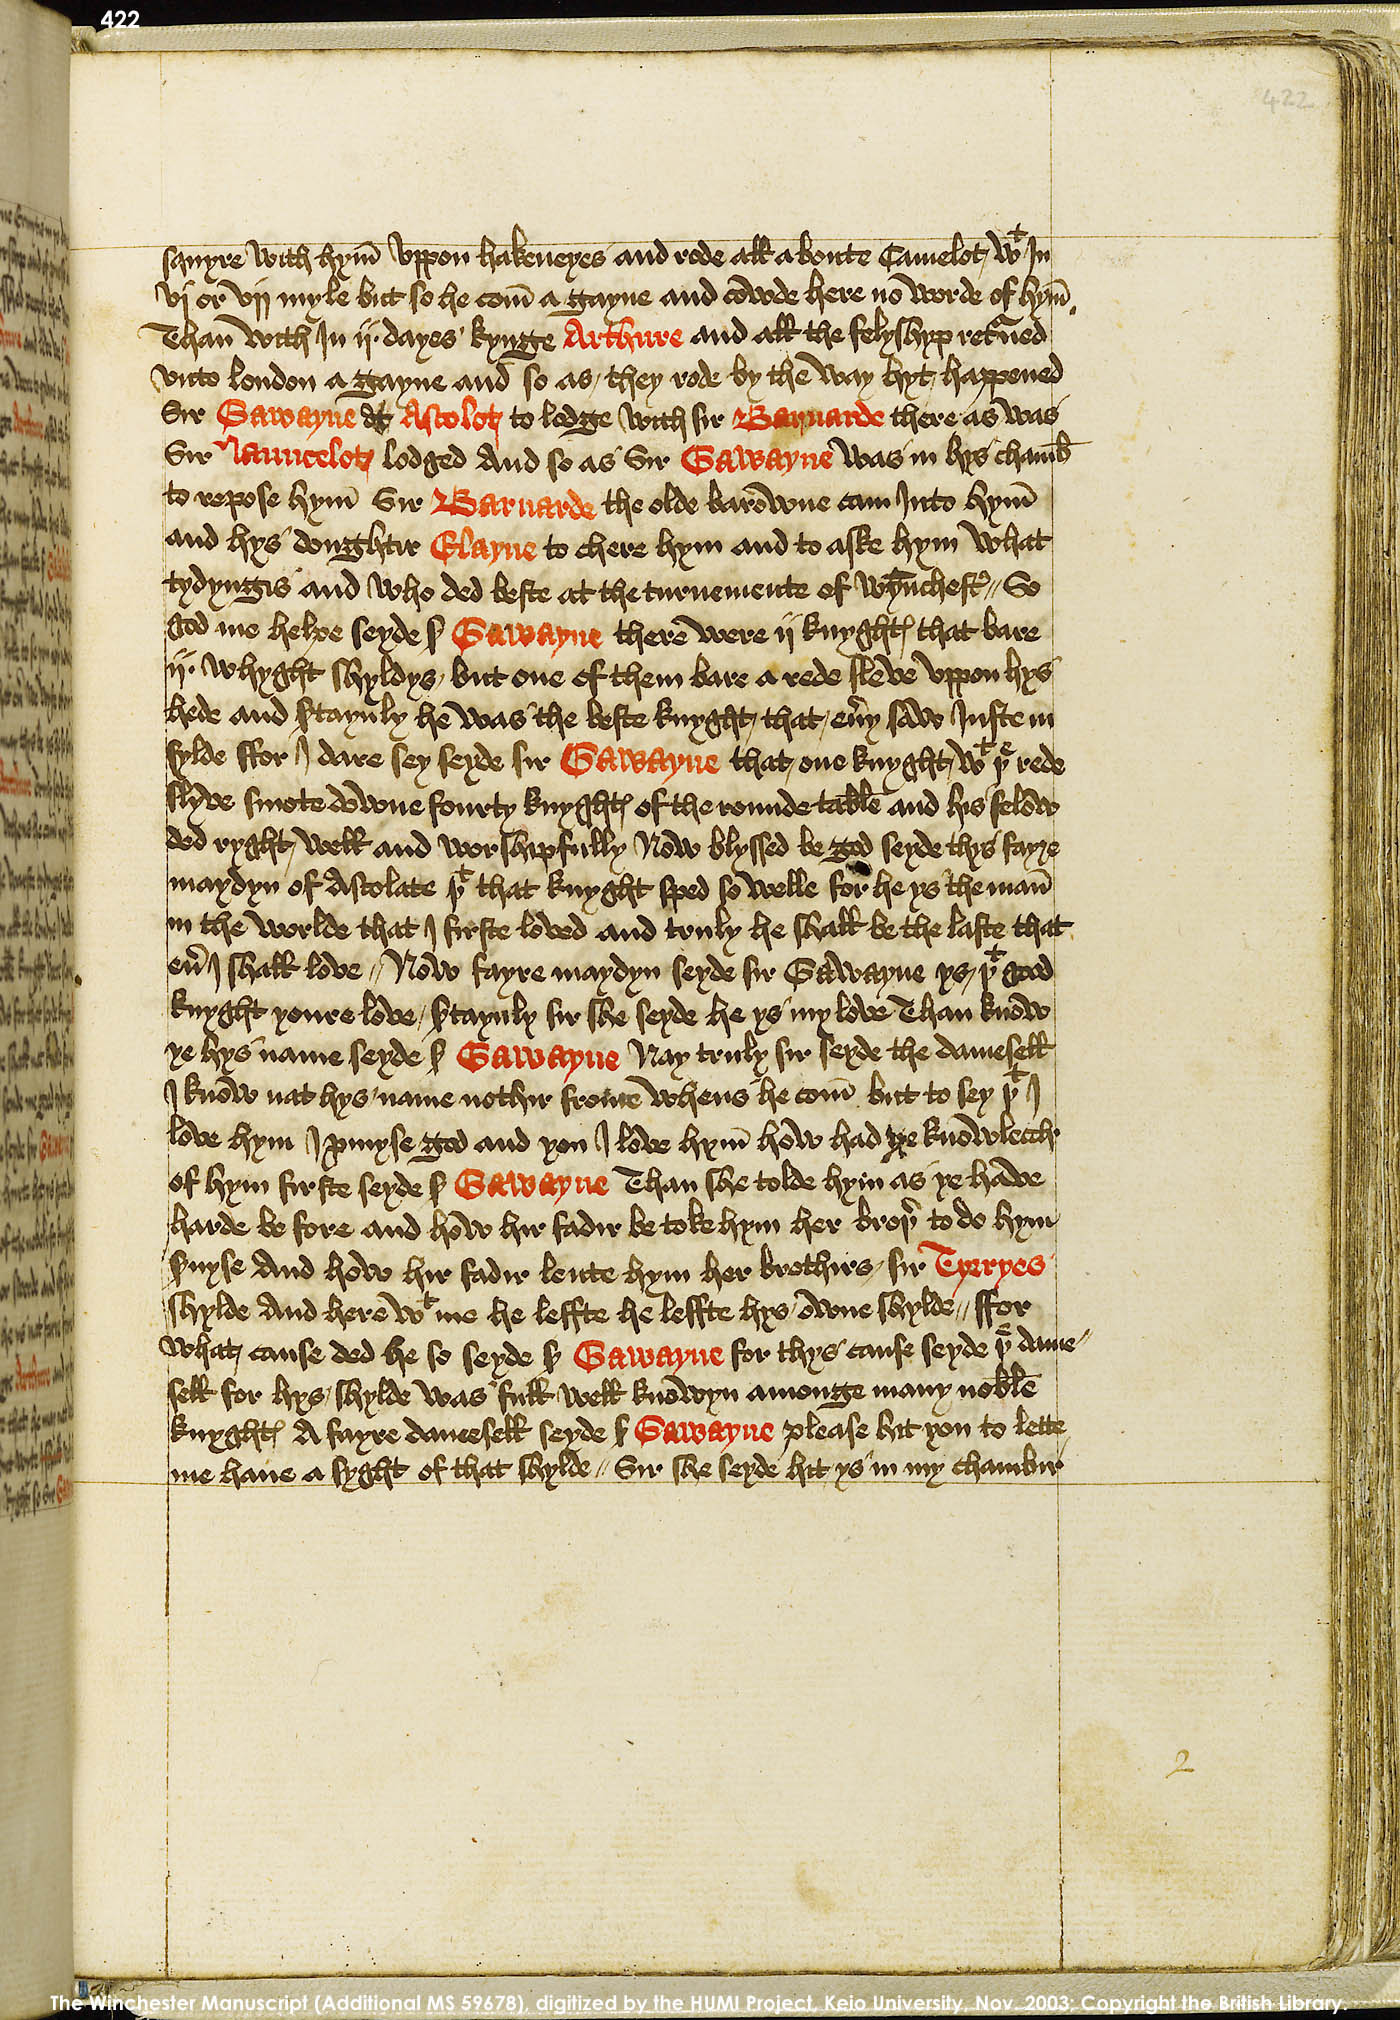 422
422
squyre with hym̄ vppon hakeneyes and rode all a boute Camelot wᵗ In
vj or vij myle but so he com̄ a gayne and cowde here no worde of hym̄
Than̄ with In ij· dayes kynge Arthure and all the felyshyp retᵘned
vnto london a gayne and so as they rode by the way hyt happened
Sir Gawayne at Ascolot to lodge with sir Barnarde there as was
Sir Launcelot lodged And so as Sir Gawayne was in hys chamb̄
to repose hym̄ Sir Barnarde the olde barowne cam Into hym̄
and hys doughtir Elayne to chere hym and to aske hym what
tydyngis and who ded beste at the turnemente of wynchestꝰ // So
god me helpe seyde ẜ Gawayne there were ij knyghtꝭ that bare
ij· whyght shyldys / but one of them bare a rede sleve vppon hys
hede and ẜtaynly he was the beste knyght that eũy saw Juste in
fylde ffor I dare sey seyde sir Gawayne that one knyght wᵗ þᵉ rede
slyve smote downe fourty knyghtꝭ of the rounde table and his felow
ded ryght well and worshipfully Now blyssed be god seyde thys fayre
maydyn of Astolate þᵗ that knyght sped so welle for he ys the man̄
in the worlde that I firste loved and truly he shall be the laste that
eũ I shall love // Now fayre maydyn seyde sir Gawayne ys þᵗ good
knyght youre love / ẜtaynly sir she seyde he ys my love Than know
ye hys name seyde ẜ Gawayne Nay truly sir seyde the damesell
I know nat hys name nothir frome whens he com̄ but to sey þᵗ I
love hym I ꝓmyse god and you I love hym̄ how had ye knowlecch
of hym firste seyde ẜ Gawayne Than she tolde hym as ye have
harde be fore and how hir fadir be toke hym her broþ̉ to do hym
ẜuyse And how hir fadir lente hym her brothirs sir Tyrryes
shylde And here wᵗ me he leffte he leffte hys owne shylde // ffor
what cause ded he so seyde ẜ Gawayne for thys cause seyde þᵉ dame//
sell for hys shylde was full well knowyn amonge many noble
knyghtꝭ A fayre damesell seyde ẜ Gawayne please hit you to lette
me haue a syght of that shylde // Sir she seyde hit ys in my chambir
2
The Winchester Manuscript (Additional MS 59678), digitized by the HUMI Project, Keio University, Nov. 2003; Copyright the British Library.